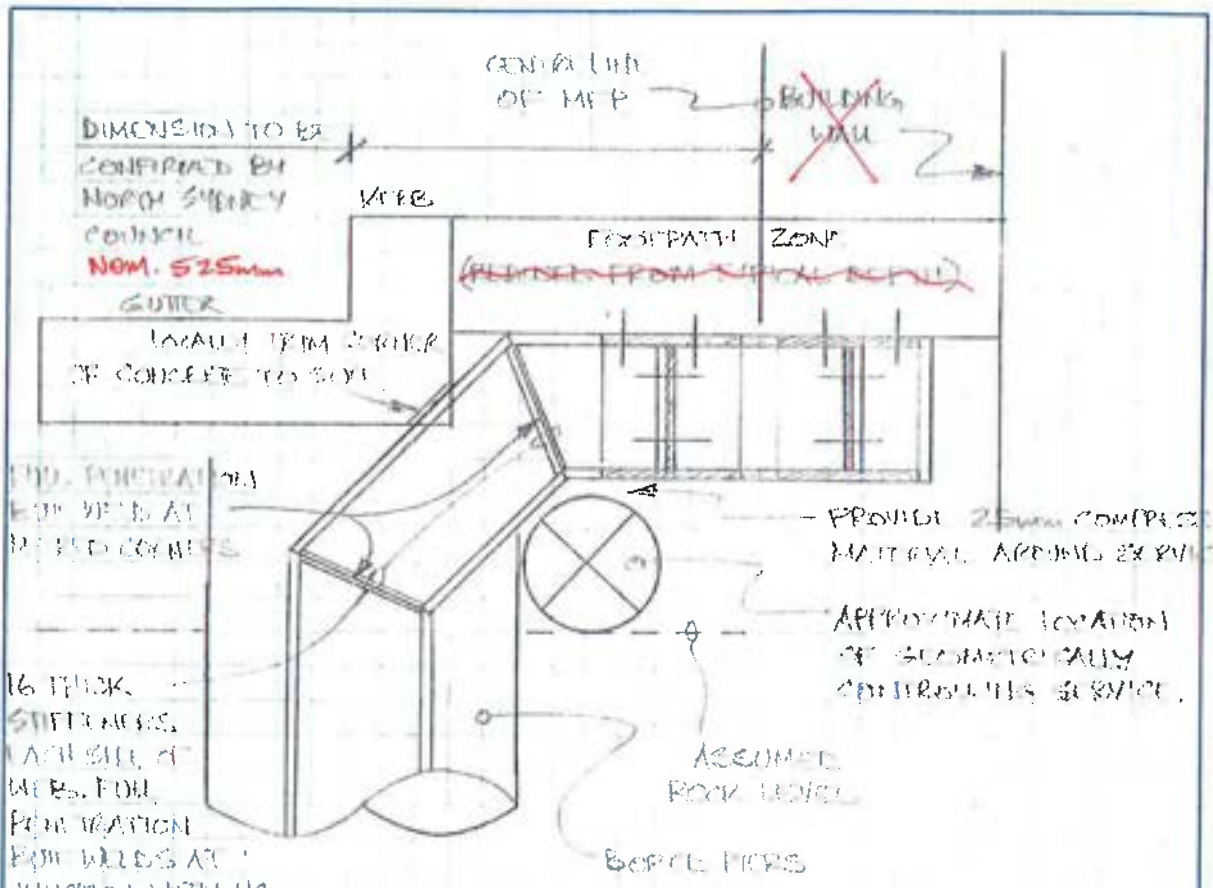 CENTRE LINE
OF MFP
BUILDING
WALL
DIMENSION TO BE
CONFIRMED BY
NORTH SYDNEY
COUNCIL
NOM. 525mm
KERB
GUTTER
FOOTPATH ZONE
(FROM TYPICAL
LOCALLY TRIM CORNER
OF CONCRETE TO SUIT
FULL PENETRATION
BUTT WELD AT
CORNERS
PROVIDE 25mm
MATERIAL AROUND
APPROXIMATE LOCATION
OF GEOMETRICALLY
CONTROLLING SERVICE.
16 THICK
STIFFENERS
EACH SIDE OF
WEBS. FULL
PENETRATION
BUTT WELDS AT
ASSUMED
ROCK LEVEL
BORED PIERS